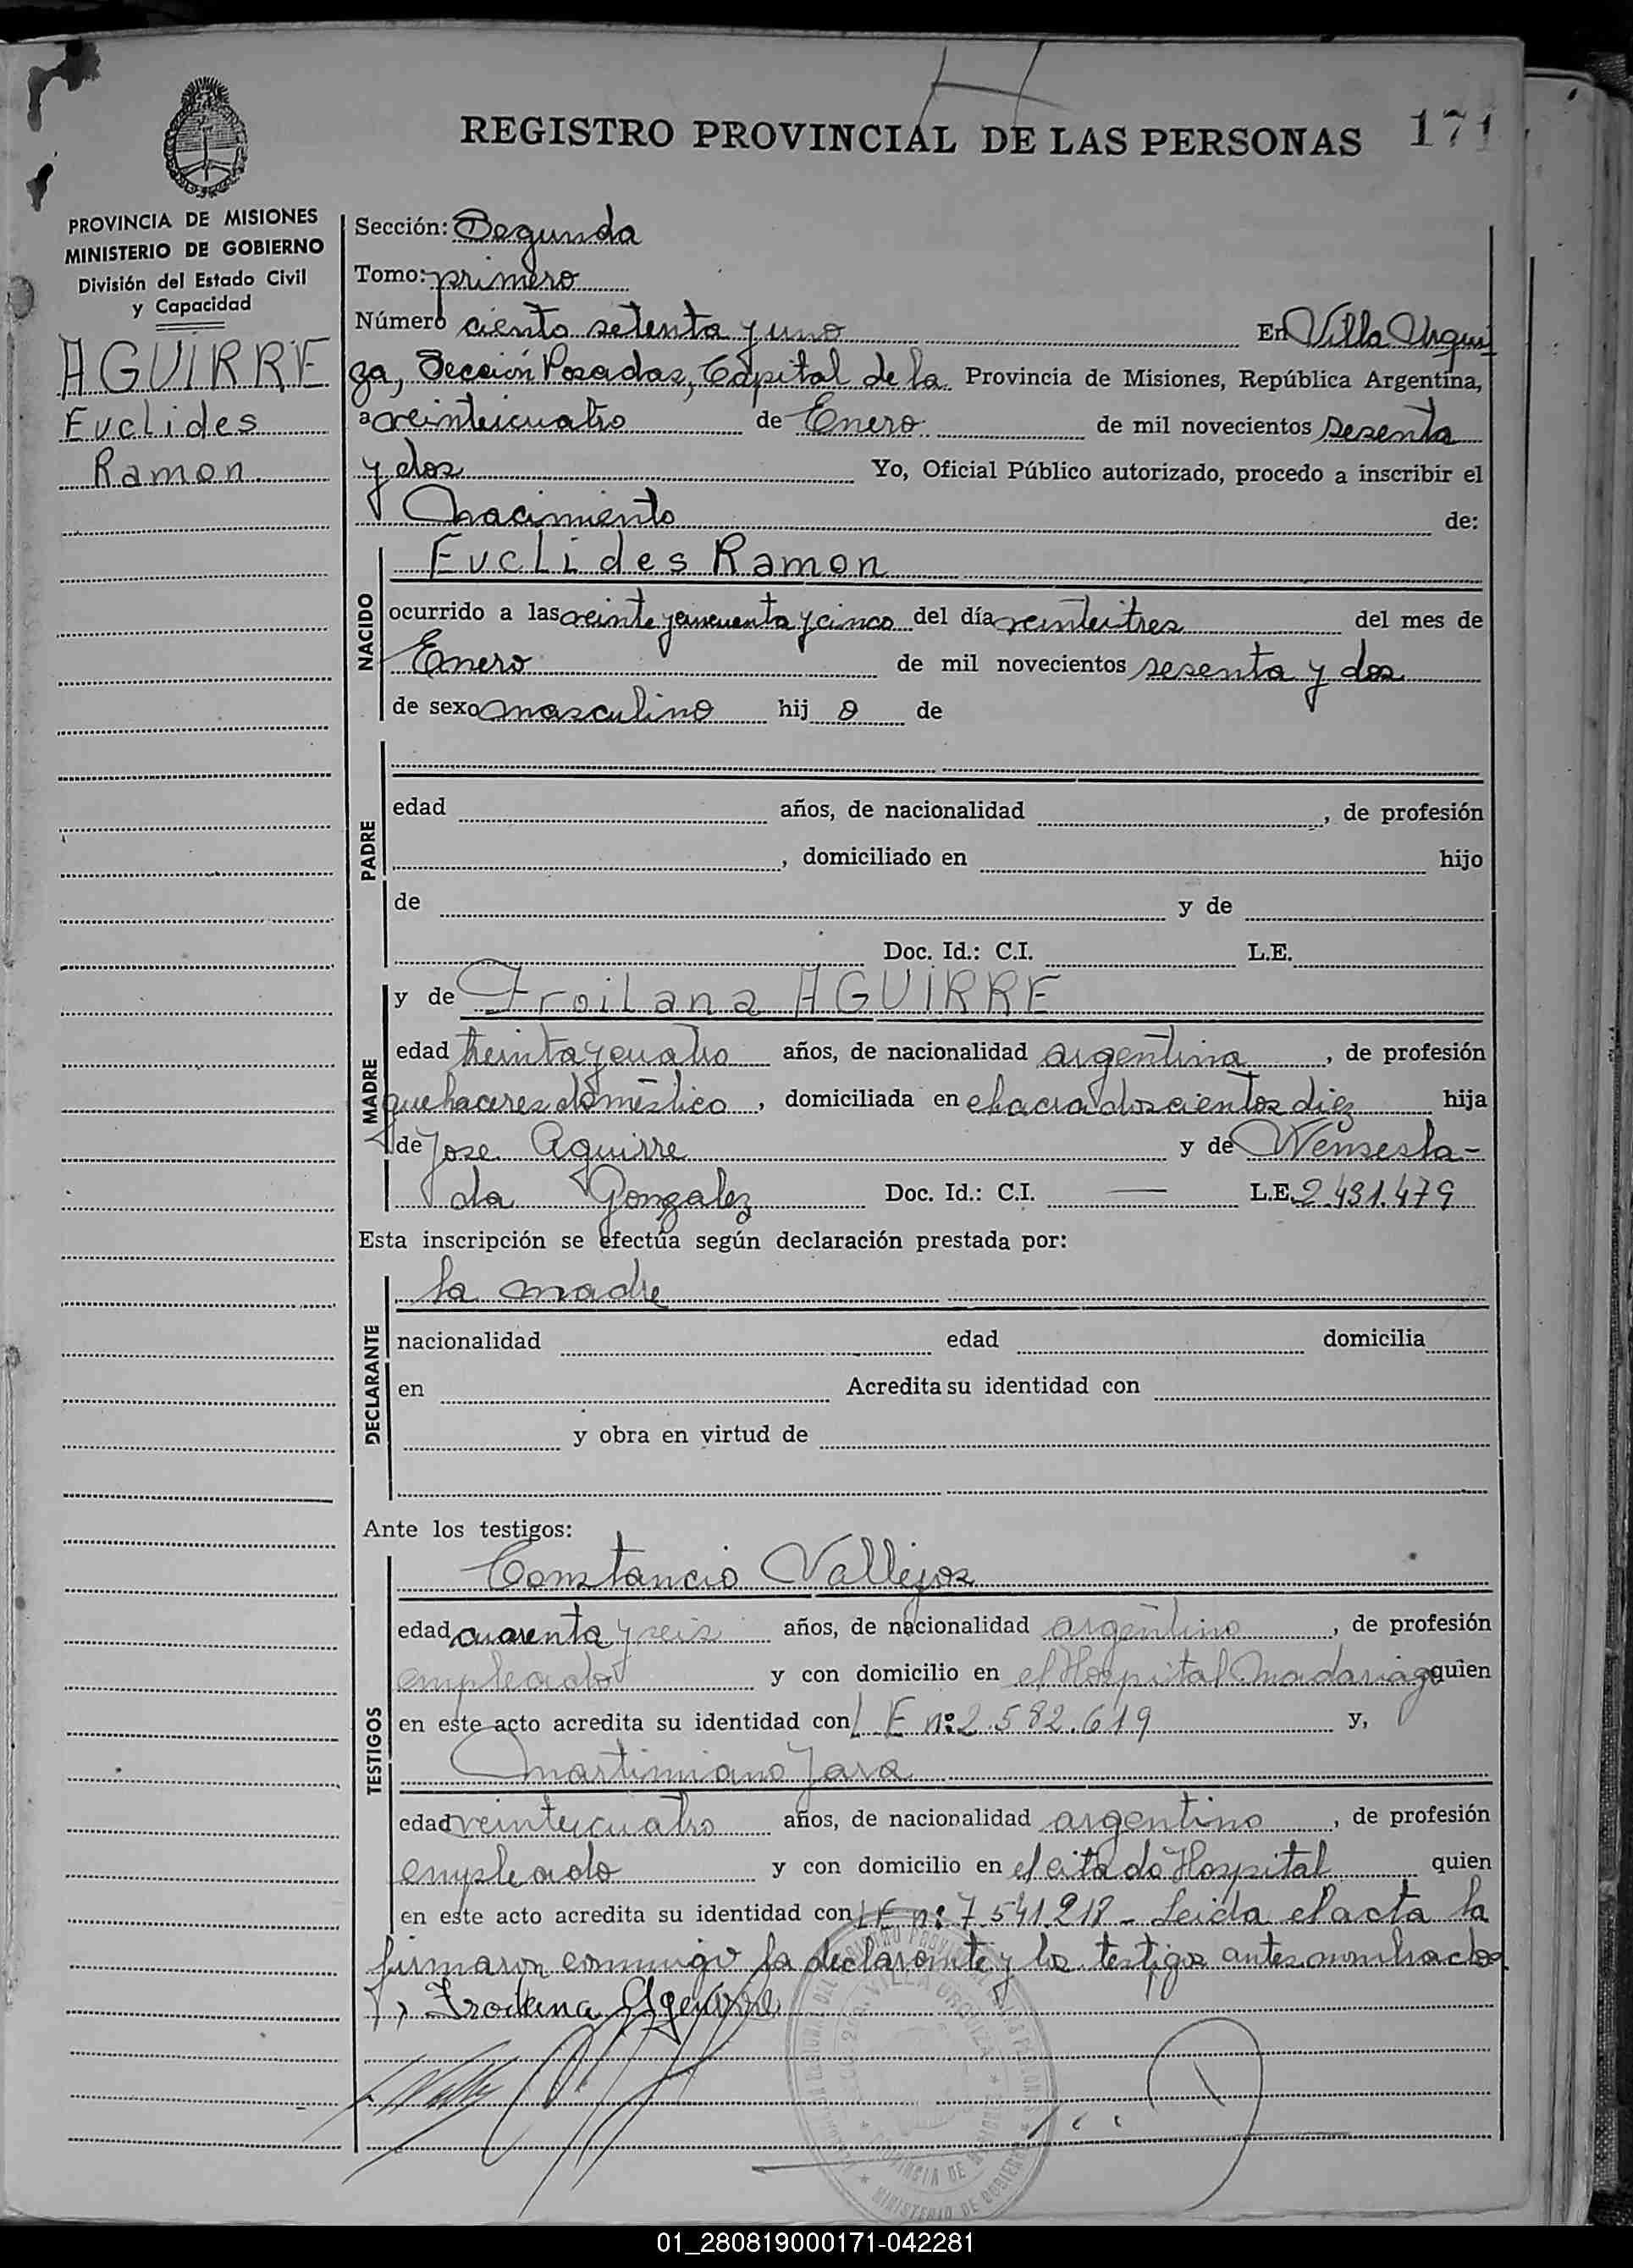 REGISTRO PROVINCIAL DE LAS PERSONAS 171
PROVINCIA DE MISIONES
MINISTERIO DE GOBIERNO
División del Estado Civil
y Capacidad
AGUIRRE
Euclides
Ramon
Sección: Segunda
Tomo: primero
Número ciento setenta y uno En Villa Urqui
za, Sección Posadas, Capital de la Provincia de Misiones, República Argentina,
a veinteicuatro de Enero de mil novecientos sesenta
y dos Yo, Oficial Público autorizado, procedo a inscribir el
Nacimiento de:
NACIDO
Euclides Ramon
ocurrido a las veinte y cincuenta y cinco del día veinteitres del mes de
Enero de mil novecientos sesenta y dos
de sexo masculino hij o de
PADRE
edad años, de nacionalidad , de profesión
, domiciliado en hijo
de y de
Doc. Id.: C.I. L.E.
MADRE
y de Froilana AGUIRRE
edad treinta y cuatro años, de nacionalidad argentina , de profesión
quehaceres doméstico , domiciliada en chacra doscientos diez hija
de Jose Aguirre y de Wensesla-
da Gonzalez Doc. Id.: C.I. — L.E. 2.431.479
Esta inscripción se efectúa según declaración prestada por:
DECLARANTE
la madre
nacionalidad edad domicilia
en Acredita su identidad con
y obra en virtud de
Ante los testigos:
TESTIGOS
Constancio Vallejos
edad cuarenta y seis años, de nacionalidad argentino , de profesión
empleado y con domicilio en el Hospital Madariaga quien
en este acto acredita su identidad con L E nº 2.582.619 y,
Martimiano Jara
edad veinteycuatro años, de nacionalidad argentino , de profesión
empleado y con domicilio en el citado Hospital quien
en este acto acredita su identidad con L E nº 7.541.218 - Leida el acta la
firmaron conmigo la declarante y los testigos antes nombrados
Froilana Aguirre
VILLA URQUIZA
PROVINCIA DE MISIONES
MINISTERIO DE GOBIERNO
01_280819000171-042281